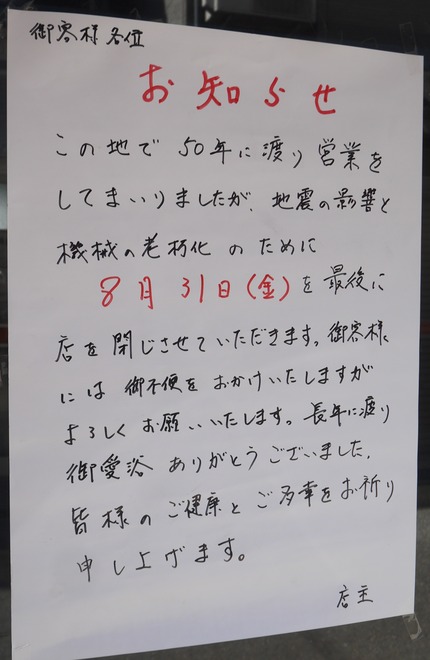 御客様各位
お知らせ
この地で50年に渡り営業を
してまいりましたが、地震の影響と
機械の老朽化のために
8月31日(金)を最後に
店を閉じさせていただきます。御客様
には御不便をおかけいたしますが
よろしくお願いいたします。長年に渡り
御愛浴ありがとうございました。
皆様のご健康とご多幸をお祈り
申し上げます。
店主